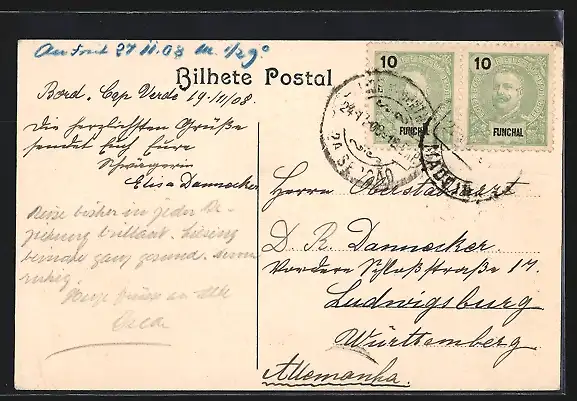 27 11.08
Bilhete Postal
Bord. Cap Verde 19./11/08.
Die herzlichsten Grüße
sendet Euch Eure
Schwägerin
Elisa Dannecker
Reise bisher in jeder Be-
ziehung brillant.
beinahe ganz gesund.
ruhig.
an alle
Oscar
10
FUNCHAL
10
FUNCHAL
2A SECÇÃO
Herrn Oberstabsarzt
D R. Dannecker.
Vordere Schloßstraße 17.
Ludwigsburg
Württemberg.
Allemanha.